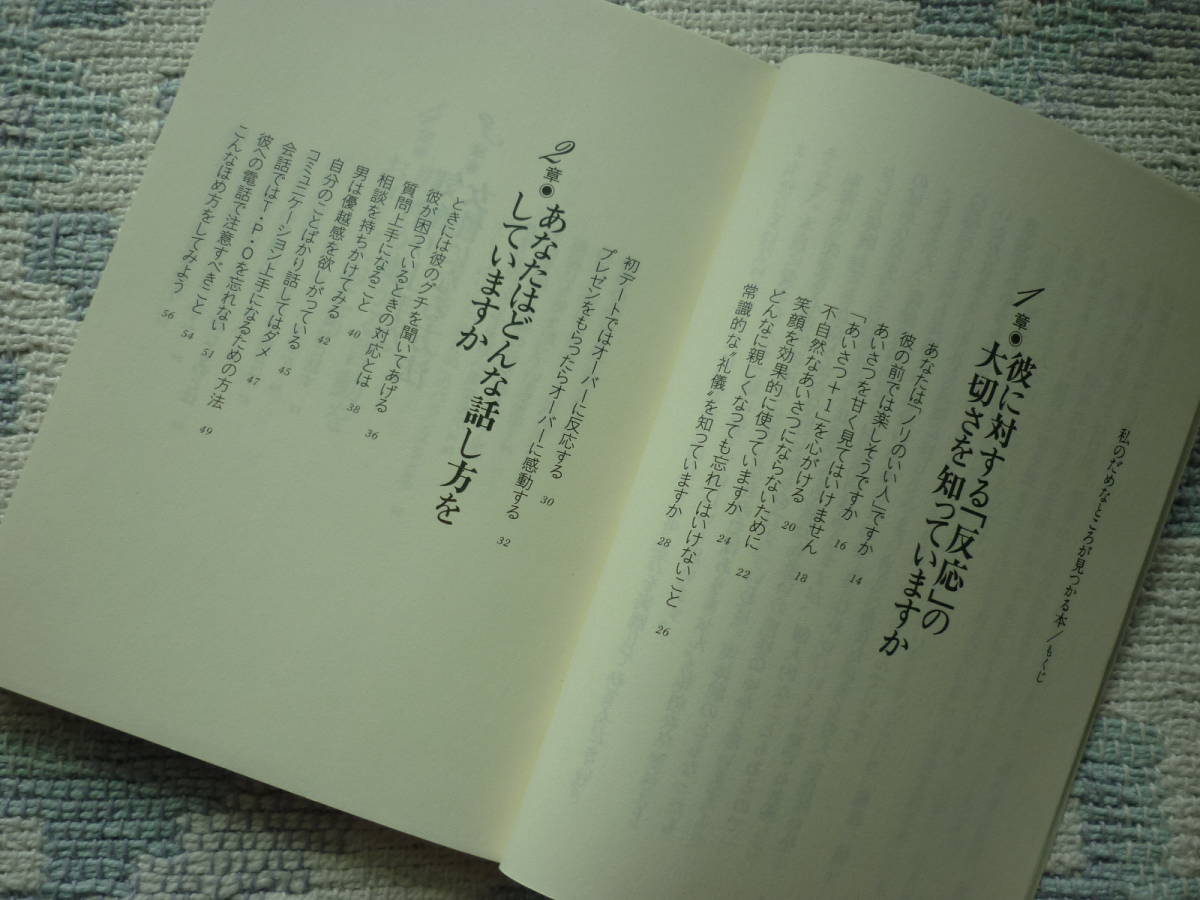 私のだめなところが見つかる本/もくじ
1章◉彼に対する「反応」の
大切さを知っていますか
あなたは「ノリのいい人」ですか 14
彼の前では楽しそうですか 16
あいさつを甘く見てはいけません 18
「あいさつ+1」を心がける 20
不自然なあいさつにならないために 22
笑顔を効果的に使っていますか 24
どんなに親しくなっても忘れてはいけないこと 26
常識的な〝礼儀〟を知っていますか 28
初デートではオーバーに反応する 30
プレゼンをもらったらオーバーに感動する 32
2章◉あなたはどんな話し方を
していますか
ときには彼のグチを聞いてあげる 36
彼が困っているときの対応とは 38
質問上手になること 40
相談を持ちかけてみる 42
男は優越感を欲しがっている 45
自分のことばかり話してはダメ 47
コミュニケーション上手になるための方法 49
会話ではT・P・Oを忘れない 51
彼への電話で注意すべきこと 54
こんなほめ方をしてみよう 56